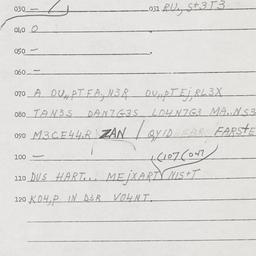 030 — 031 RU., S+3T3
040 0
050 —
060 —
070 A DU,,PTFA,N3R DU,,PTEj,RL3X
080 TAN3S DAN7G3S LO4N7G3 MA..NS3
090 M3CE44.R ZAN / QYID FARSTE
100 — (107(047
110 DUS HART... MEJXART NIS+T
120 KO4,P IN D&R VO4NT.